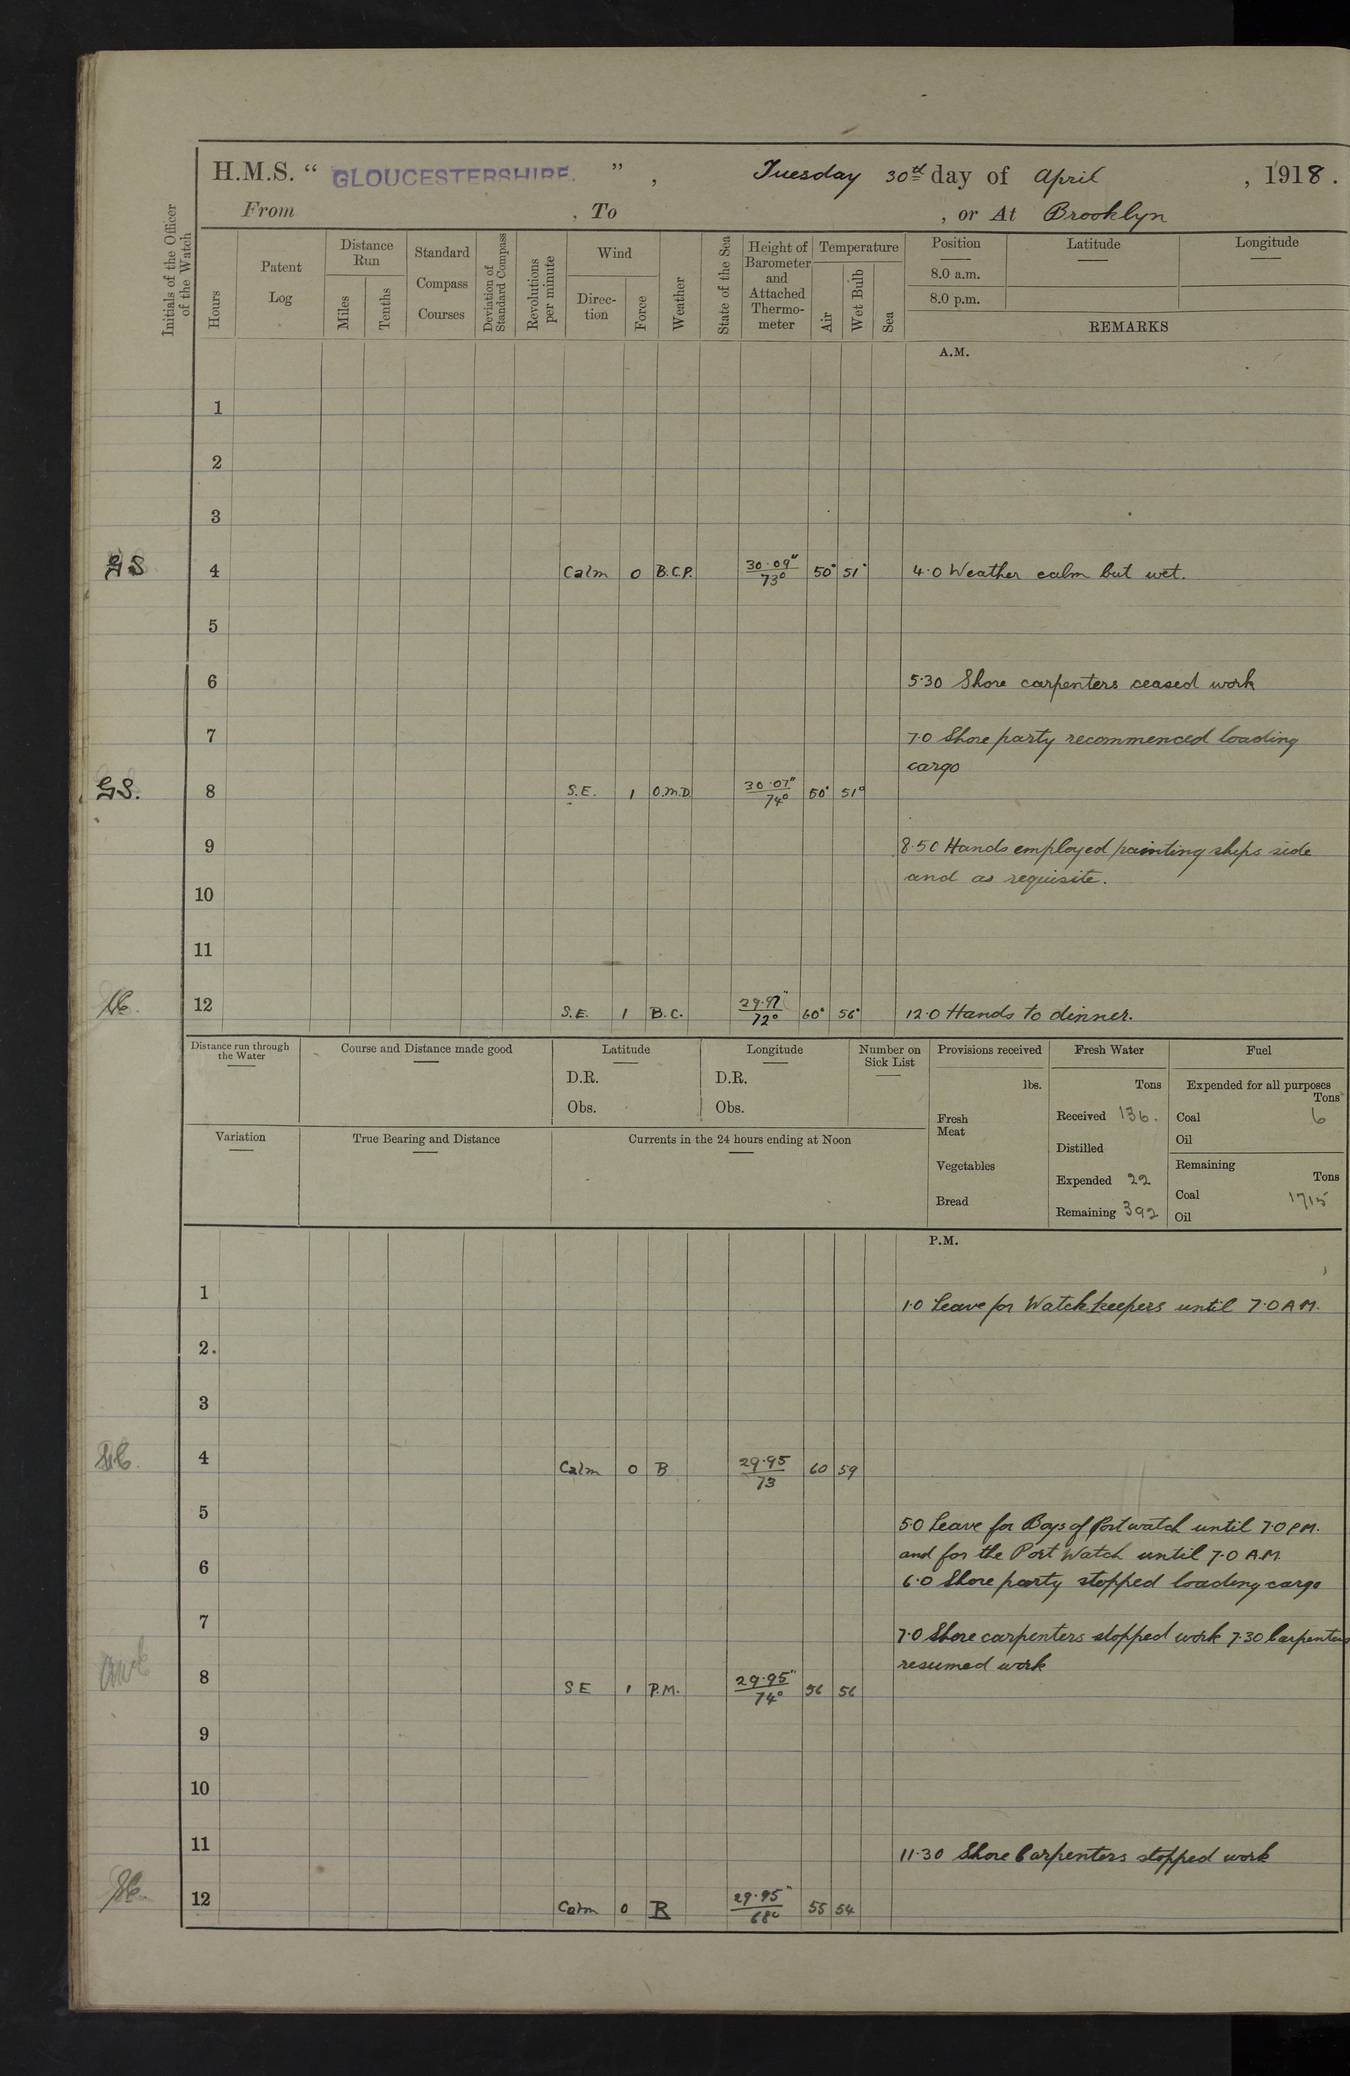 H.M.S. “ GLOUCESTERSHIRE. ” , Tuesday 30th day of April , 1918.
From , To , or At Brooklyn
Initials of the Officer of the Watch
Hours
Patent Log
Distance Run
Miles
Tenths
Standard Compass Courses
Deviation of Standard Compass
Revolutions per minute
Wind
Direc-tion
Force
Weather
State of the Sea
Height of Barometer and Attached Thermo-meter
Temperature
Air
Wet Bulb
Sea
Position Latitude Longitude
8.0 a.m.
8.0 p.m.
REMARKS
A.M.
1
2
3
GS 4 Calm 0 B.C.P. 30.09" 73° 50° 51° 4.0 Weather calm but wet.
5
6 5.30 Shore carpenters ceased work
7 7.0 Shore party recommenced loading
cargo
GS. 8 S.E. 1 O.M.D 30.07" 74° 50° 51°
9 8.50 Hands employed painting ships side
and as requisite.
10
11
12 S.E. 1 B.C. 29.97" 72° 60° 56° 12.0 Hands to dinner.
Distance run through the Water
Course and Distance made good
Latitude
D.R.
Obs.
Longitude
D.R.
Obs.
Number on Sick List
Provisions received
lbs.
Fresh Meat
Vegetables
Bread
Fresh Water
Tons
Received 136.
Distilled
Expended 22
Remaining 392
Fuel
Expended for all purposes
Tons
Coal 6
Oil
Remaining
Tons
Coal 1715
Oil
Variation
True Bearing and Distance
Currents in the 24 hours ending at Noon
P.M.
1 1.0 Leave for Watchkeepers until 7.0 AM.
2.
3
4 Calm 0 B 29.95 73 60 59
5 5.0 Leave for Boys of Port watch until 7.0 PM.
and for the Port Watch until 7.0 A.M.
6 6.0 Shore party stopped loading cargo
7 7.0 Shore carpenters stopped work 7.30 Carpenters
resumed work
8 SE 1 P.M. 29.95" 74° 56 56
9
10
11 11.30 Shore Carpenters stopped work
12 Calm 0 B 29.95" 68° 55 54